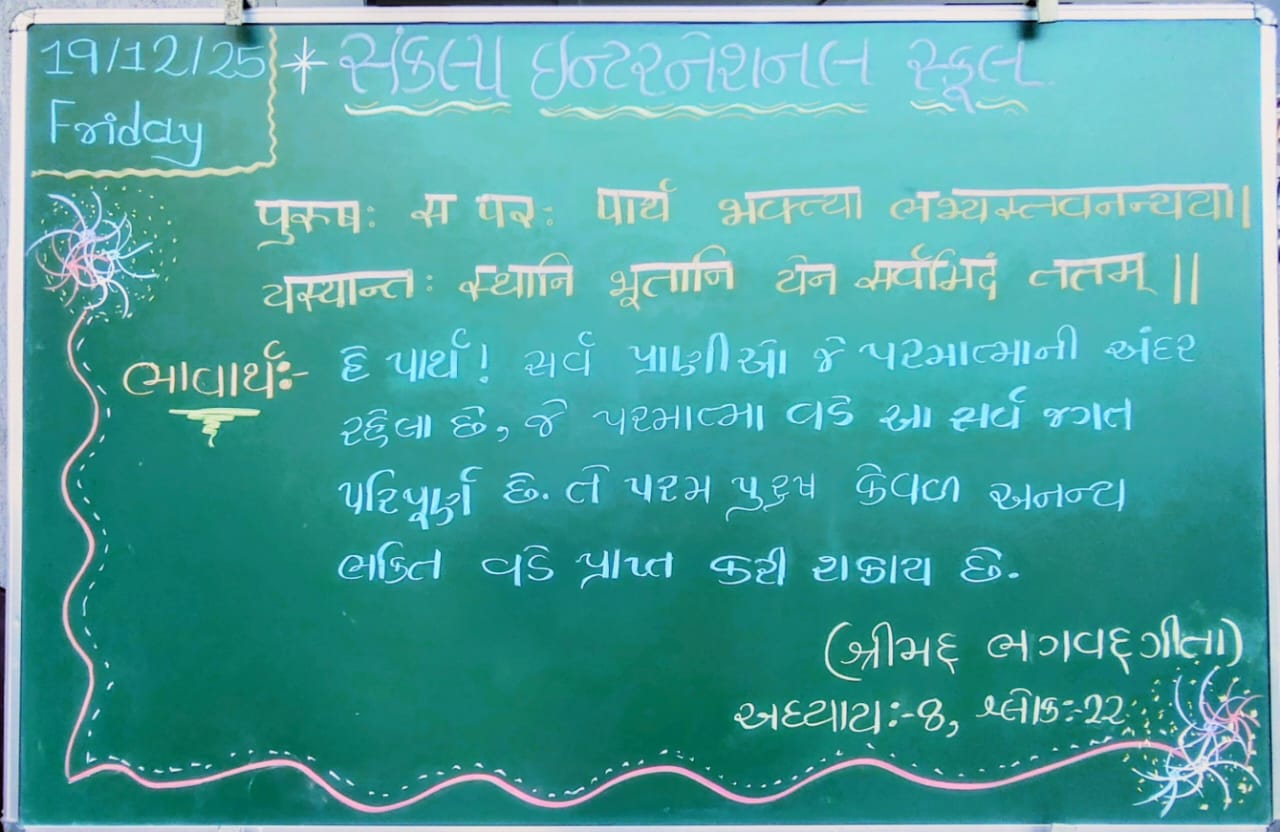 19/12/25
Friday
* સંકલ્પ ઇન્ટરનેશનલ સ્કૂલ
पुरुषः स परः पार्थ भक्त्या लभ्यस्त्वनन्यया।
यस्यान्तः स्थानि भूतानि येन सर्वमिदं ततम् ||
ભાવાર્થઃ- હે પાર્થ! સર્વ પ્રાણીઓ જે પરમાત્માની અંદર
રહેલા છે, જે પરમાત્મા વડે આ સર્વ જગત
પરિપૂર્ણ છે. તે પરમ પુરુષ કેવળ અનન્ય
ભક્તિ વડે પ્રાપ્ત કરી શકાય છે.
(શ્રીમદ્ ભગવદ્ગીતા)
અધ્યાયઃ-8, શ્લોકઃ-22